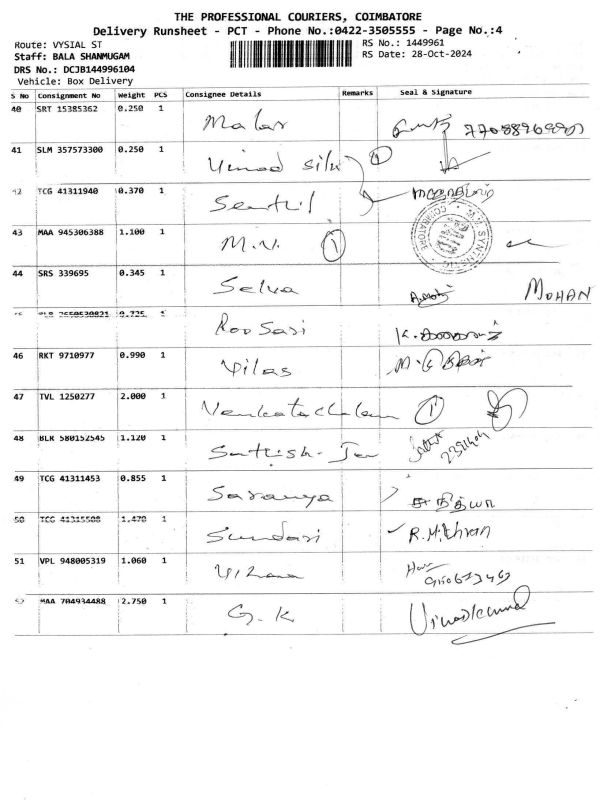 THE PROFESSIONAL COURIERS, COIMBATORE
Delivery Runsheet - PCT - Phone No.:0422-3505555 - Page No.:4
Route: VYSIAL ST RS No.: 1449961
Staff: BALA SHANMUGAM RS Date: 28-Oct-2024
DRS No.: DCJB144996104
Vehicle: Box Delivery
S No Consignment No Weight PCS Consignee Details Remarks Seal & Signature
40 SRT 15385362 0.250 1 Malar
41 SLM 357573300 0.250 1 Vinod silk 1
42 TCG 41311940 0.370 1 Senthil
COIMBATORE
43 MAA 945306388 1.100 1 M.V. 1
44 SRS 339695 0.345 1 Selva MOHAN
1
46 RKT 9710977 0.990 1 Vilas
47 TVL 1250277 2.000 1 Venkatachalam 1
48 BLR 580152545 1.120 1
49 TCG 41311453 0.855 1 Saranya நித்யா
50 TCG 41315508 1.470 1 Sundari R. Mithran
51 VPL 948005319 1.060 1
52 MAA 704934488 2.750 1 G.K Vinodkumar